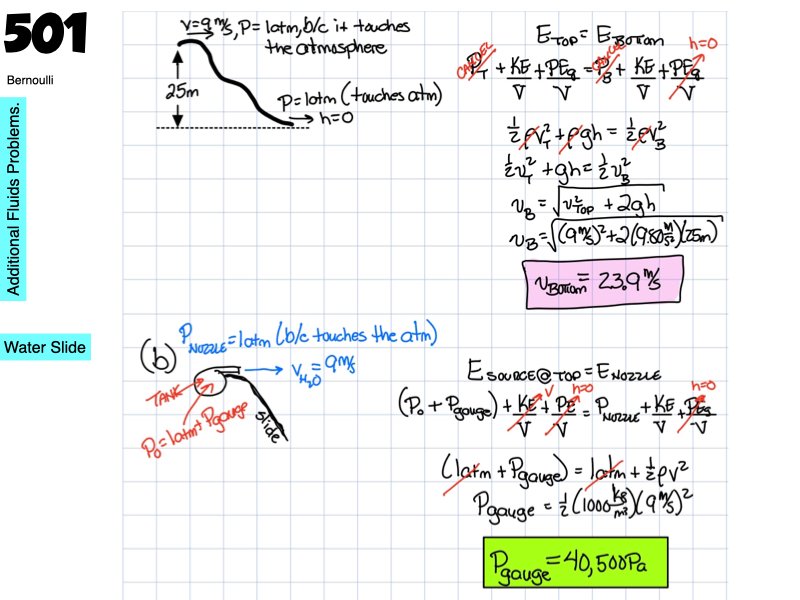 501
Bernoulli
Additional Fluids Problems.
Water Slide
v=9 m/s, P=1atm, b/c it touches
the atmosphere
25m
P=1atm (touches atm)
→ h=0
E_TOP = E_BOTTOM
P_T + KE/V + PE_g/V = P_B + KE/V + PE_g/V
CANCEL
h=0
½ρv_T² + ρgh = ½ρv_B²
½v_T² + gh = ½v_B²
v_B = √(v_TOP² + 2gh)
v_B = √((9 m/s)² + 2(9.80 m/s²)(25m))
v_Bottom = 23.9 m/s
(b)
P_NOZZLE = 1atm (b/c touches the atm)
→ v_H₂O = 9 m/s
TANK
P₀ = 1atm + P_gauge
slide
E_SOURCE@TOP = E_NOZZLE
v h=0 h=0
(P₀ + P_gauge) + KE/V + PE/V = P_NOZZLE + KE/V + PE_g/V
(1atm + P_gauge) = 1atm + ½ρv²
P_gauge = ½(1000 kg/m³)(9 m/s)²
P_gauge = 40,500Pa